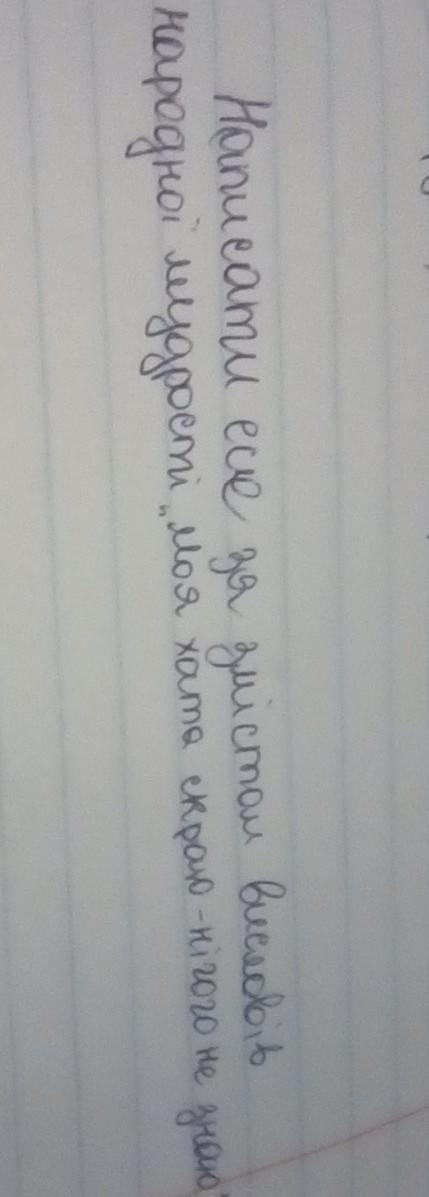 Написати есе за змістом висловів
народної мудрості „Моя хата скраю - нічого не знаю"